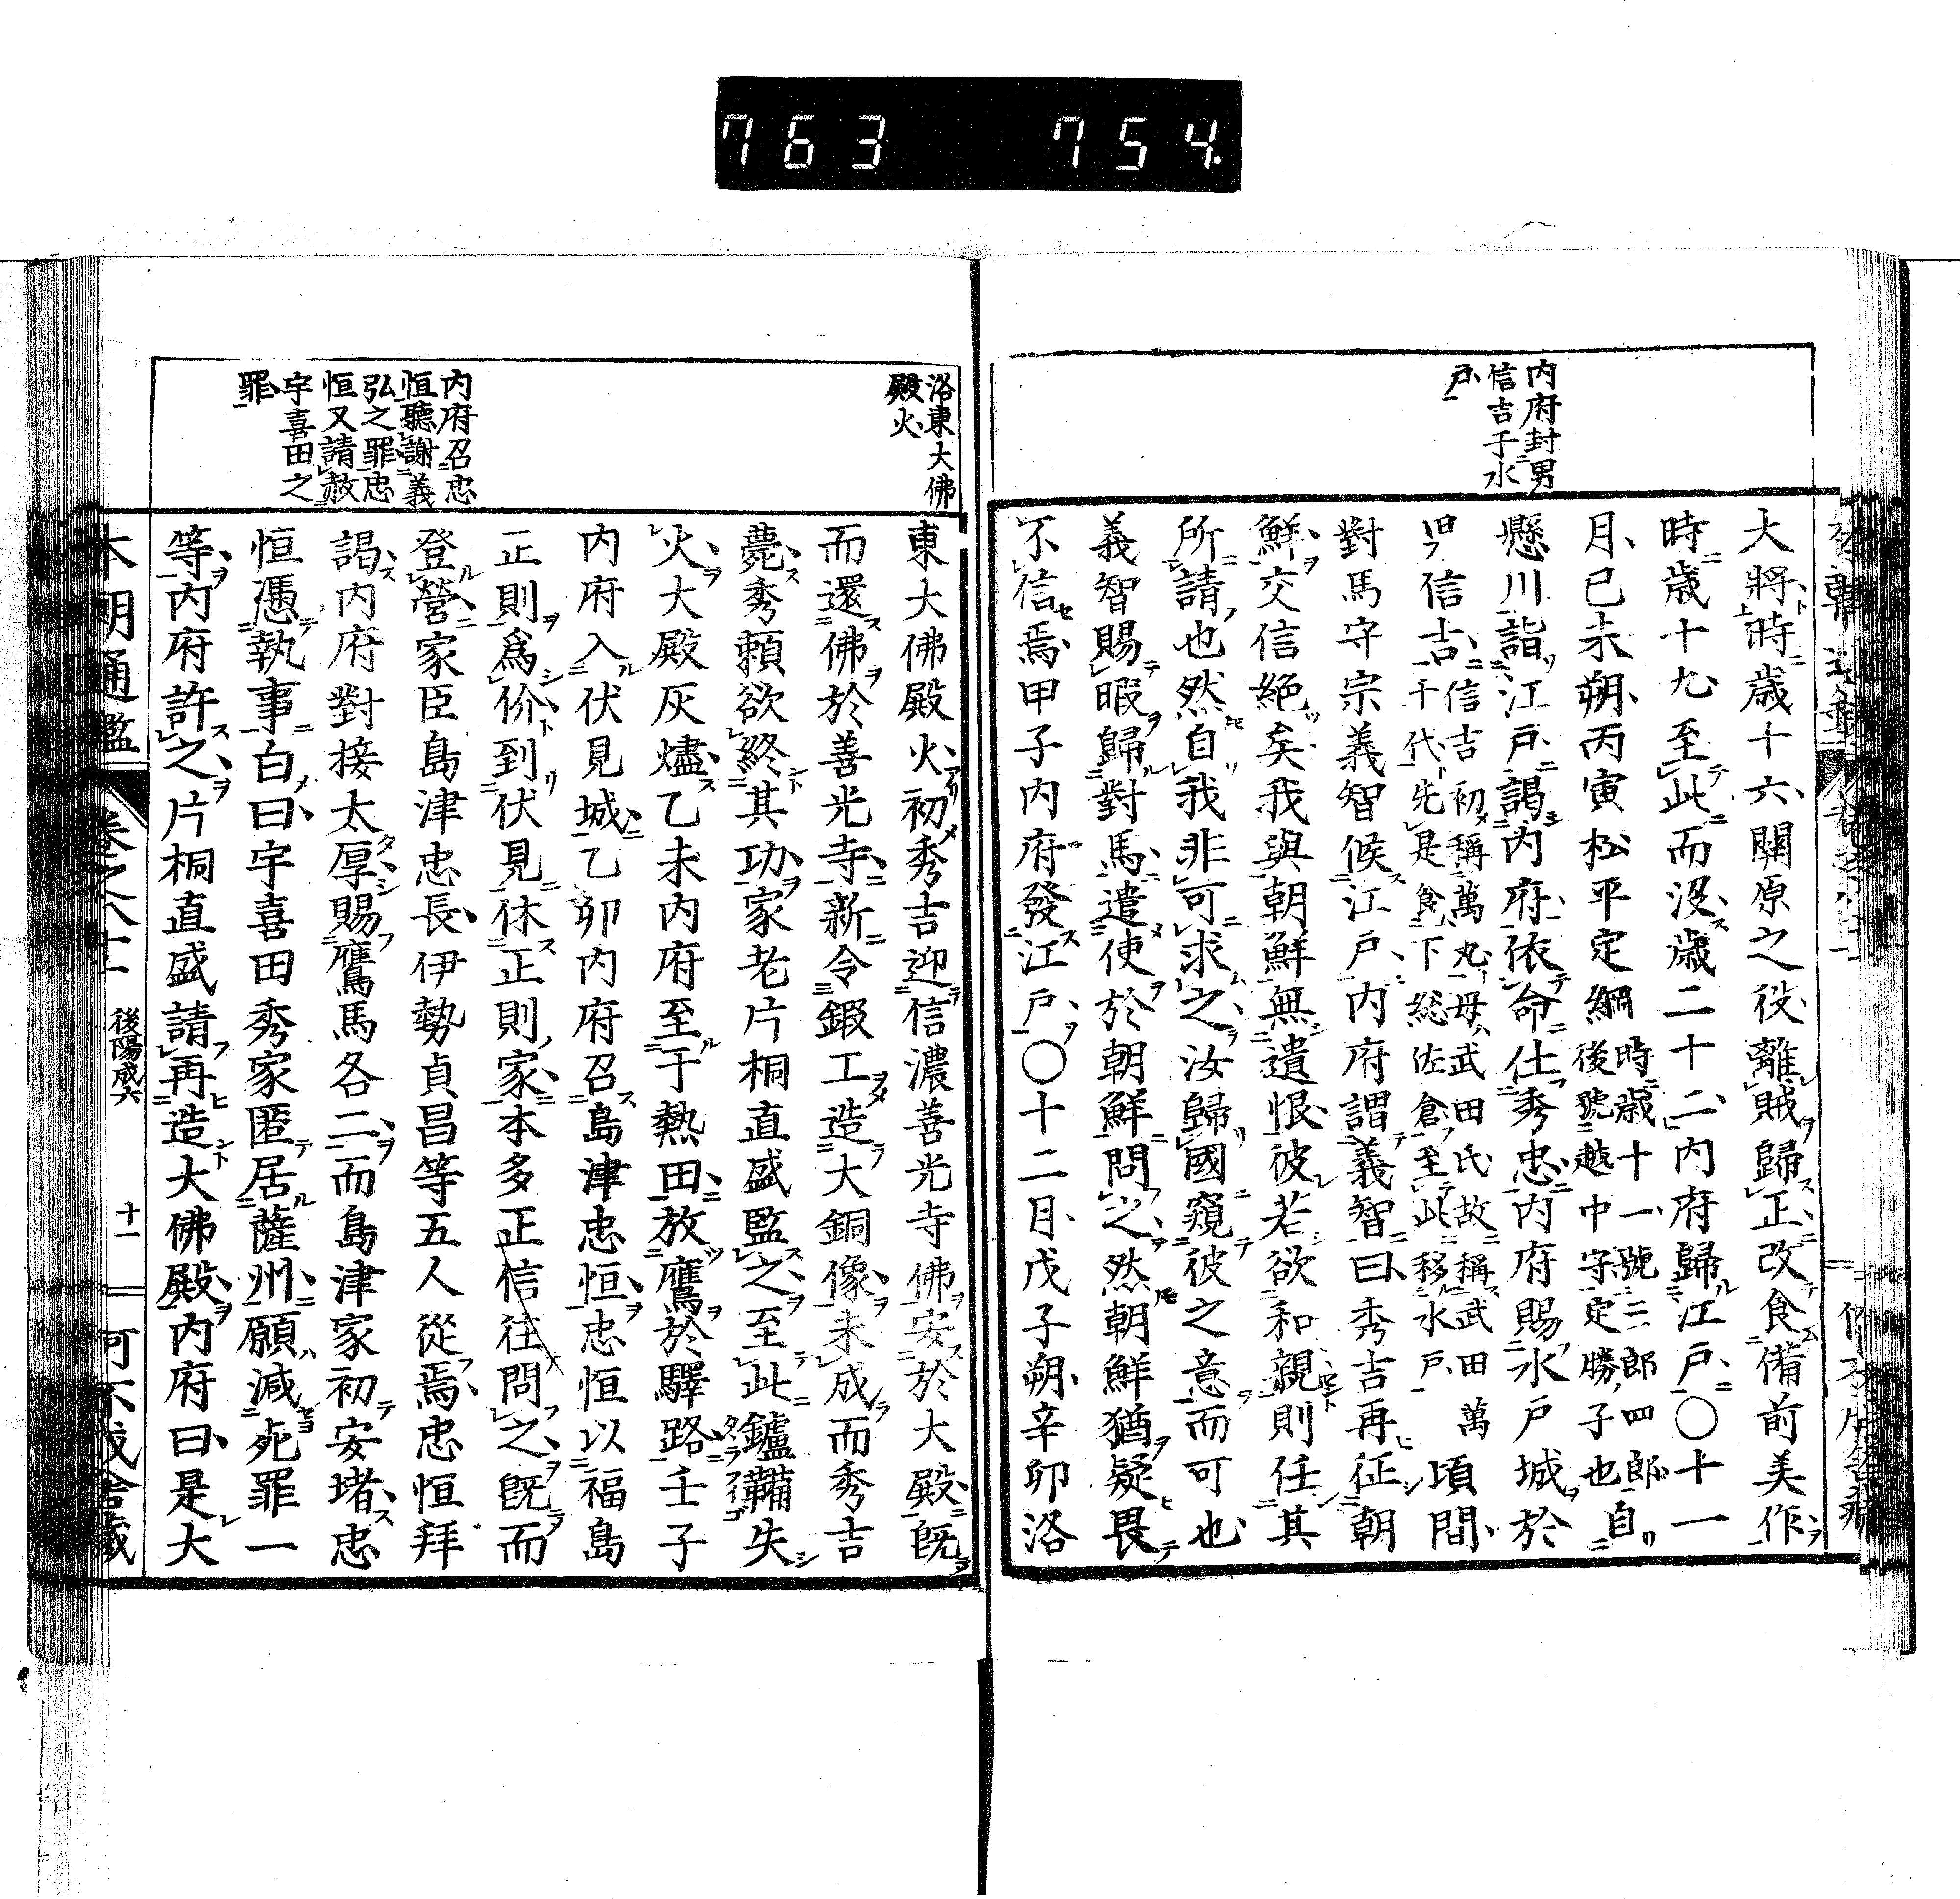 763 754
内府封男
信吉于水
戸
大將時歳十六關原之役離賊歸正改食備前美作
時歳十九至此而沒歳二十二内府歸江戸〇十一
月己未朔丙寅松平定綱時歳十一號三郎四郎
後號越中守定勝子也自
懸川詣江戸謁内府依命仕秀忠内府賜水戸城於
男信吉信吉初稱萬丸母武田氏故稱武田萬
千代先是食下総佐倉至此移水戸頃間
對馬守宗義智候江戸内府謂義智曰秀吉再征朝
鮮交信絶矣我與朝鮮無遺恨彼若欲和親則任其
所請也然自我非可求之汝歸國窺彼之意而可也
義智賜暇歸對馬遣使於朝鮮問之然朝鮮猶疑畏
不信焉甲子内府發江戸〇十二月戊子朔辛卯洛
洛東大佛
殿火
内府召忠
恒聽謝義
弘之罪忠
恒又請赦
宇喜田之
罪
東大佛殿火初秀吉迎信濃善光寺佛安於大殿既
而還佛於善光寺新令鍛工造大銅像未成而秀吉
薨秀頼欲終其功家老片桐直盛監之至此鑪鞴失
火大殿灰燼乙未内府至于熱田放鷹於驛路壬子
内府入伏見城乙卯内府召島津忠恒忠恒以福島
正則爲价到伏見休正則家本多正信往問之既而
登營家臣島津忠長伊勢貞昌等五人從焉忠恒拜
謁内府對接太厚賜鷹馬各二而島津家初安堵忠
恒憑執事白曰宇喜田秀家匿居薩州願減死罪一
等内府許之片桐直盛請再造大佛殿内府曰是大
本朝通鑑
後陽成六
十一